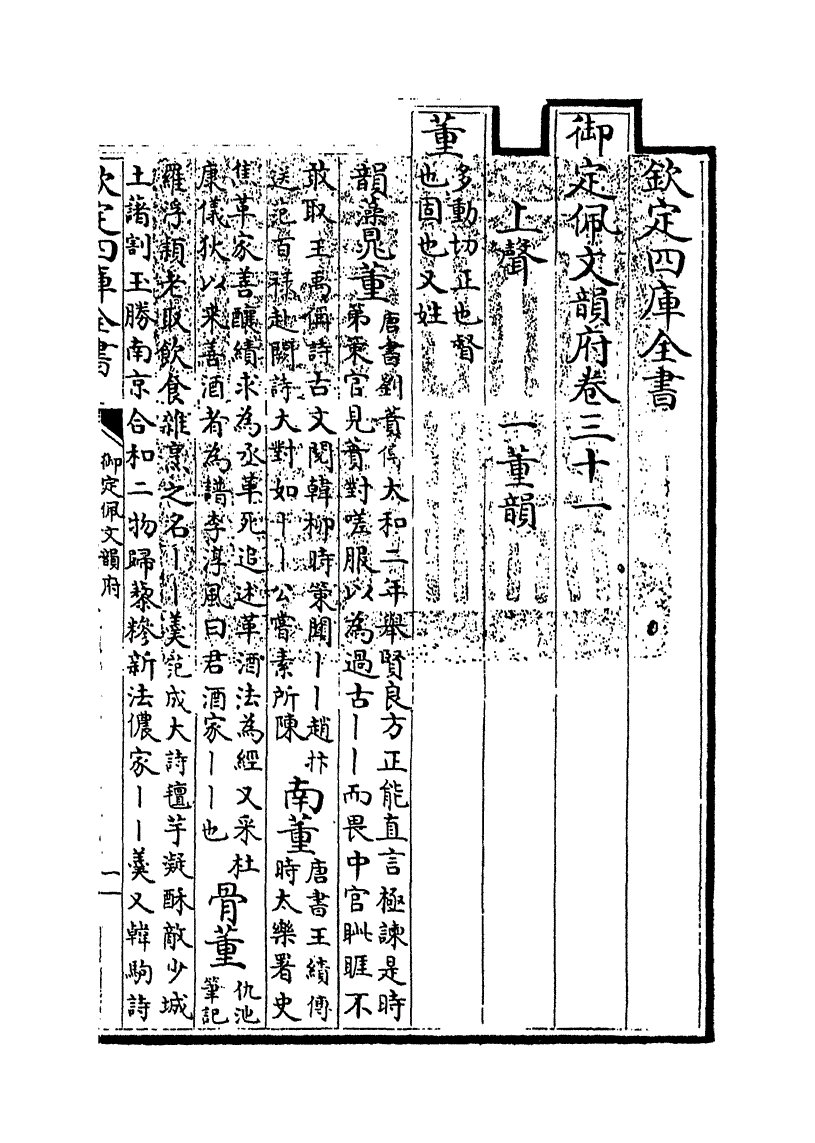 欽定四庫全書
御定佩文韻府卷三十一
上聲
一董韻
董
多動切正也督
也固也又姓
韻藻
晁董
唐書劉蕡傳太和二年舉賢良方正能直言極諫是時
第策官見蕡對嗟服以為過古丨丨而畏中官眦睚不
敢取王禹偁詩古文閱韓柳時策聞丨丨趙抃
送范百祿赴闕詩大對如丨丨公嘗素所陳
南董
唐書王績傳
時太樂署史
焦革家善釀績求為丞革死追述革酒法為經又采杜
康儀狄以來善酒者為譜李淳風曰君酒家丨丨也
骨董
仇池
筆記
羅浮頴老取飲食雜烹之名丨丨羹范成大詩氊芋凝酥敵少城
土藷割玉勝南京合和二物歸藜糝新法儂家丨丨羹又韓駒詩
欽定四庫全書
御定佩文韻府
一